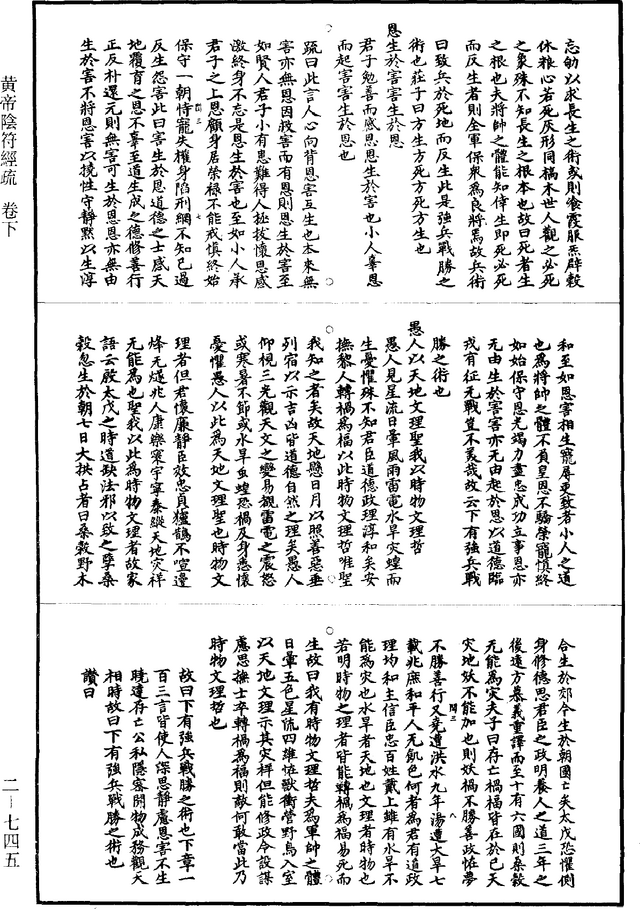 黄帝陰符經疏　卷下
二－七四五
忘劬以求長生之術或則飡霞服氣辟穀
休粮心若死灰形同槁木世人觀之必死
之象殊不知長生之根本也故曰死者生
之根也夫將帥之體能知倖生即死必死
而反生者則全軍保衆爲良將焉故兵術
曰致兵於死地而反生此是強兵戰勝之
術也莊子曰方生方死方死方生也
恩生於害害生於恩
君子勉善而感恩恩生於害也小人辜恩
而起害害生於恩也
疏曰此言人心向背恩害互生也本來無
害亦無恩因救害而有恩則恩生於害至
如賢人君子小有患難得人拯拔懷恩感
激終身不忘是恩生於害也至如小人承
君子之上恩顧身居榮禄不能戒慎終始
閏三　七
保守一朝恃寵失權身陷刑網不知己過
反生怨害此曰害生於恩道德之士感天
地覆育之恩不辜至道生成之德修善行
正反朴還元則無害可生於恩恩亦無由
生於害不將恩害以撓性守静黙以生淳
和至如恩害相生寵辱更致者小人之道
也爲將帥之體不負皇恩不驕榮寵慎終
如始保守恩光竭力盡忠成功立事恩亦
无由生於害害亦无由起於恩以道德臨
戎有征无戰豈不美哉故云下有強兵戰
勝之術也
愚人以天地文理聖我以時物文理哲
愚人見星流日暈風雨雷電水旱灾蝗而
生憂懼殊不知君臣道德政理淳和矣安
撫黎人轉禍爲福以此時物文理哲唯聖
我知之者矣故天地懸日月以照善惡垂
列宿以示吉凶皆道德自然之理矣愚人
仰視三光觀天文之變易覩雷電之震怒
或寒暑不節或水旱虫蝗恐禍及身悉懷
憂懼愚人以此爲天地文理聖也時物文
理者但君懷廉静臣效忠貞櫨鵲不喧邊
烽无燧兆人康樂寰宇寧泰縱天地灾祥
无能爲也聖我以此爲時物文理者故家
語云殷太戊之時道缺法邪以致之孽桑
穀忽生於朝七日大拱占者曰桑穀野木
合生於郊今生於朝國亡矣太戊恐懼側
身修德思君臣之政明養人之道三年之
後遠方慕義重譯而至十有六國則桑穀
无能爲灾夫子曰存亡禍福皆在於己天
灾地妖不能加也則妖禍不勝善政怪夢
不勝善行又堯遭洪水九年湯遭大旱七
閏三　八
載兆庶和平人无飢色何者爲君有道政
理均和主信臣忠百姓戴上雖有水旱不
能爲灾也水旱者天地也文理者時物也
若明時物之理者皆能轉禍爲福易死而
生故曰我有時物文理哲夫爲軍帥之體
日暈五色星流四維怪獸衝營野鳥入室
以天地文理示其灾祥但能修政令設謀
慮思撫士卒轉禍爲福則敵何敢當此乃
時物文理哲也
故曰下有強兵戰勝之術也下章一
百三言皆使人深思静慮恩害不生
曉達存亡公私隱密開物成務觀天
相時故曰下有強兵戰勝之術也
讚曰